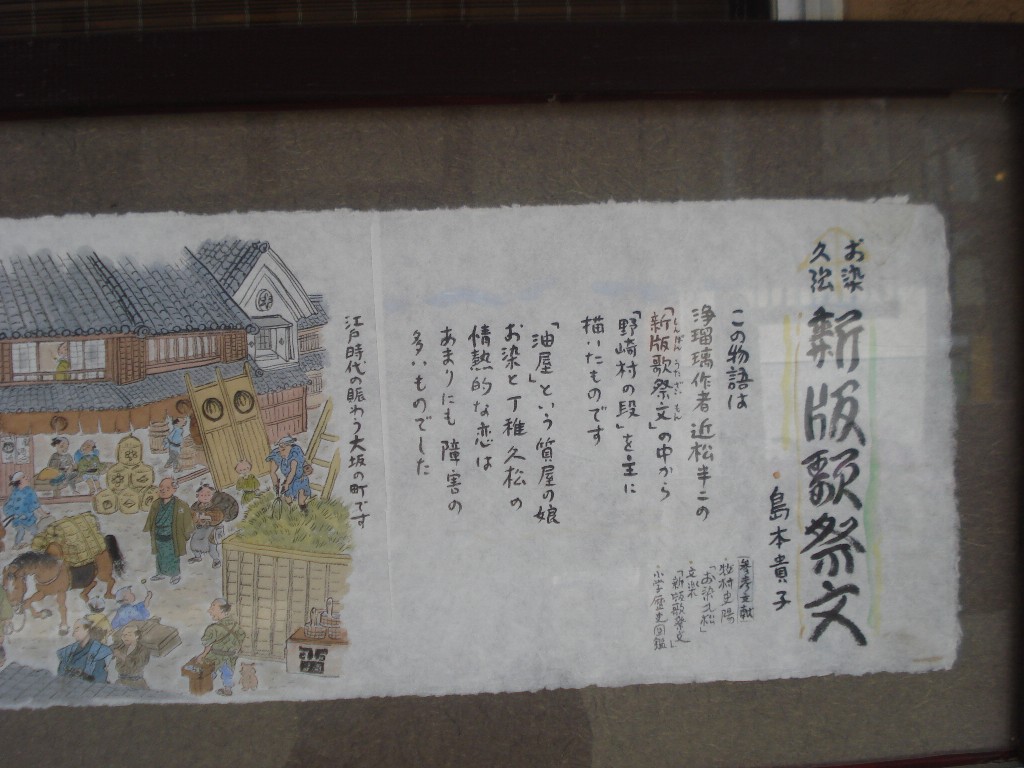 お染
久松
新版歌祭文
島本貴子
この物語は
浄瑠璃作者近松半二の
「新版歌祭文」の中から
しんぱんうたざいもん
「野崎村の段」を主に
描いたものです
参考文献
「お染久松」
文楽
「新版歌祭文」
小学歴史図鑑
「油屋」という質屋の娘
お染と丁稚久松の
情熱的な恋は
あまりにも障害の
多いものでした
江戸時代の賑わう大坂の町です